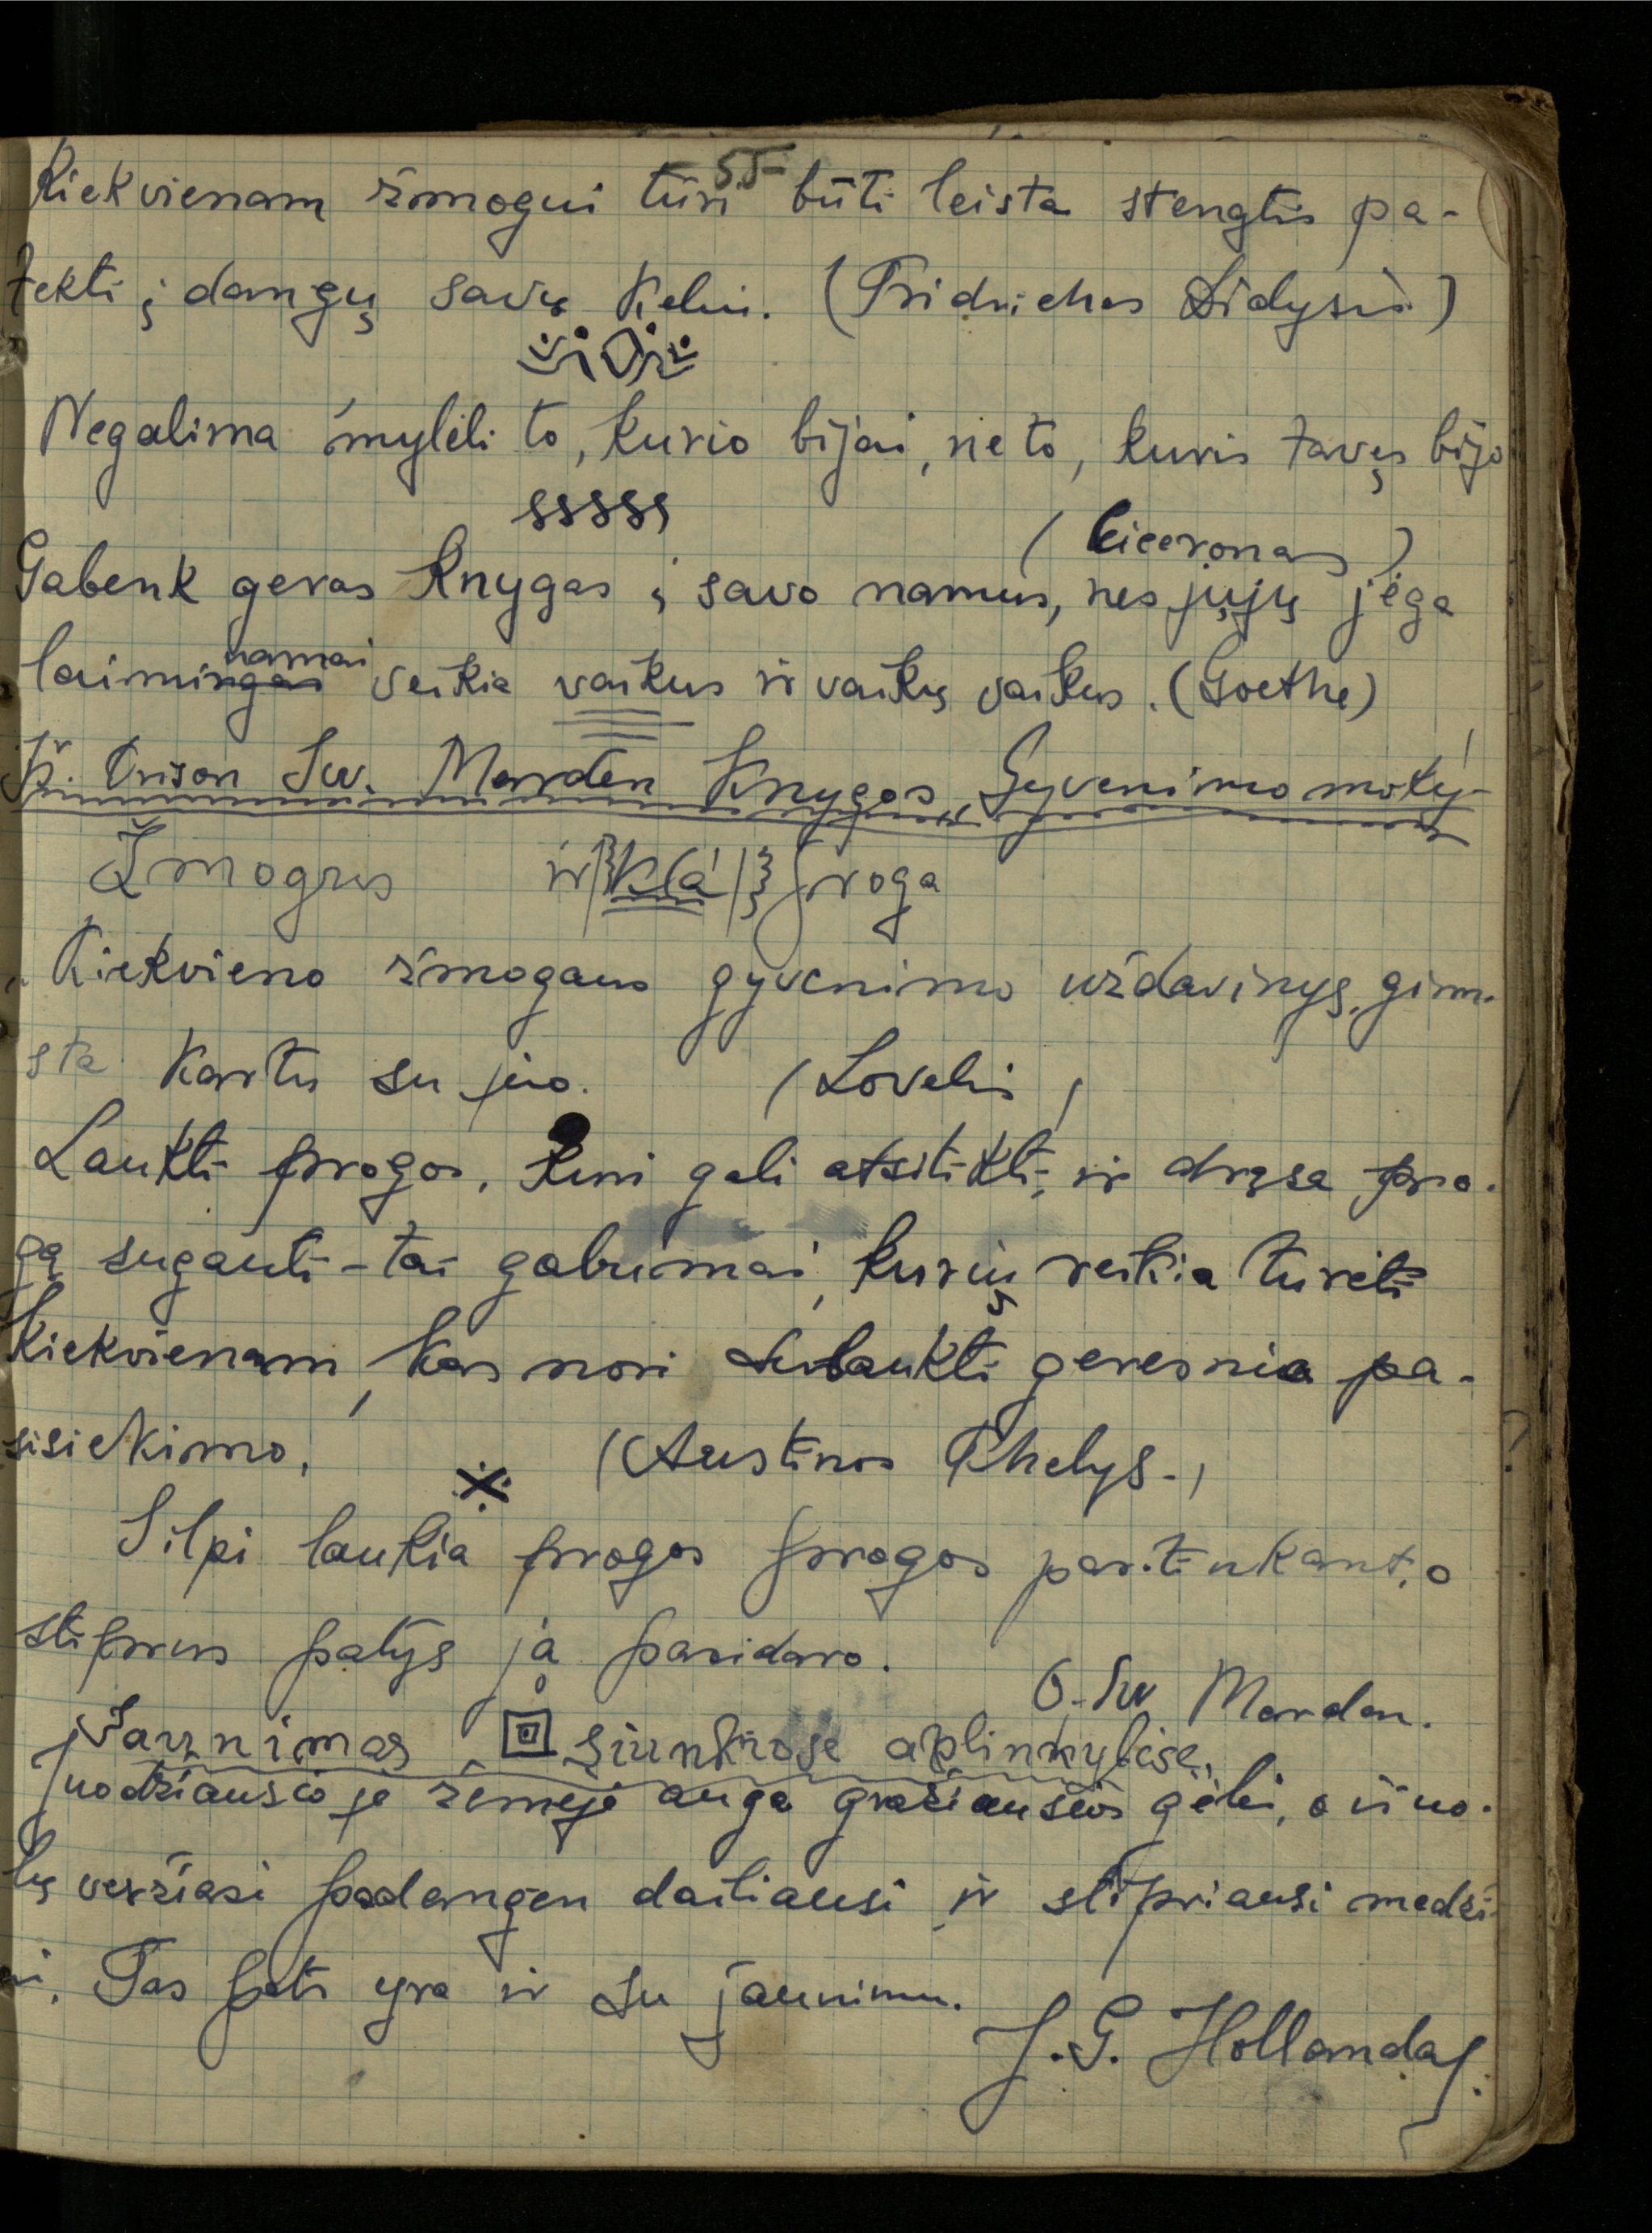 55
Kiekvienam žmogui turi būti leista stengtis pa-
tekti į dangų savu keliu. (Fridrichas Didysis)
Negalima mylėti to, kurio bijai, ne to, kuris tavęs bijo
(Ciceronas)
Gabenk geras knygas į savo namus, nes jųjų jėga
namai
laimingai veikia vaikus ir vaikų vaikus. (Goethe)
Iš. Orison Sw. Marden Knygos „Gyvenimo moky-
Žmogus ir kla proga
„Kiekvieno žmogaus gyvenimo uždavinys, gim-
sta kartu su juo. (Lovelis)
Laukti progos, kuri gali atsitikti, ir drąsa pro-
gą sugauti - tai gabumai, kurių reikia turėti
Kiekvienam, kas nori sulaukti geresnio pa-
sisiekimo, (Austinos Phelys.)
Silpi laukia progos progos pasitinkant, o
stiprus patys ją pasidaro.
O. Sw Marden.
Jaunimas sunkiose aplinkybėse,
Juodžiausioje žemėje auga gražiausios gėlės, o iš uo-
lų veržiasi padangėn dailiausi ir stipriausi medži-
ai. Tas pats yra ir su jaunimu.
J. G. Hollandas.